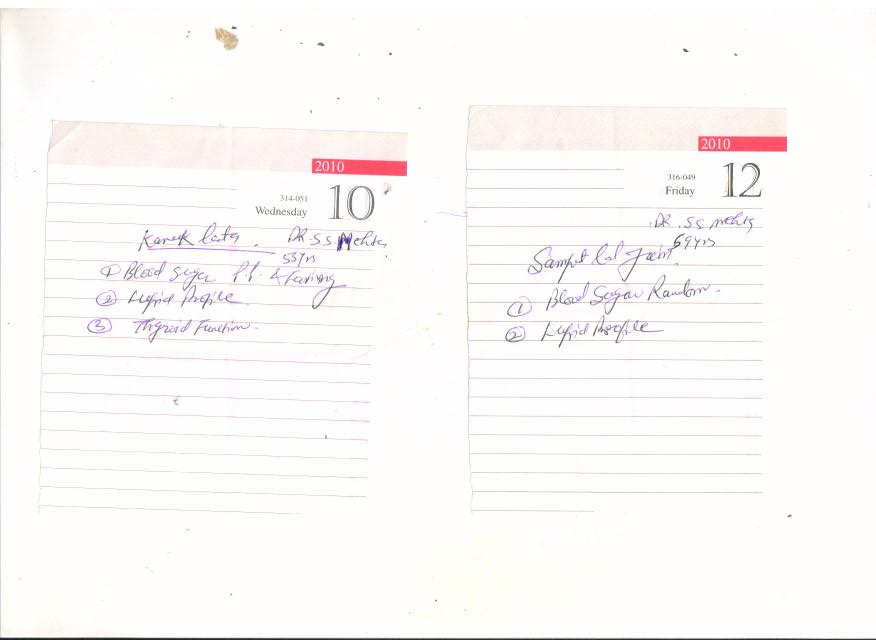 2010
314-051
Wednesday 10
Kanak lata. DR. S.S. Mehta
53 yrs
① Blood Sugar P.P. & Fasting
② Lipid Profile
③ Thyroid Function.
2010
316-049
Friday 12
DR. S.S. Mehta
59 yrs
Sampat Lal Jain.
① Blood Sugar Random.
② Lipid Profile